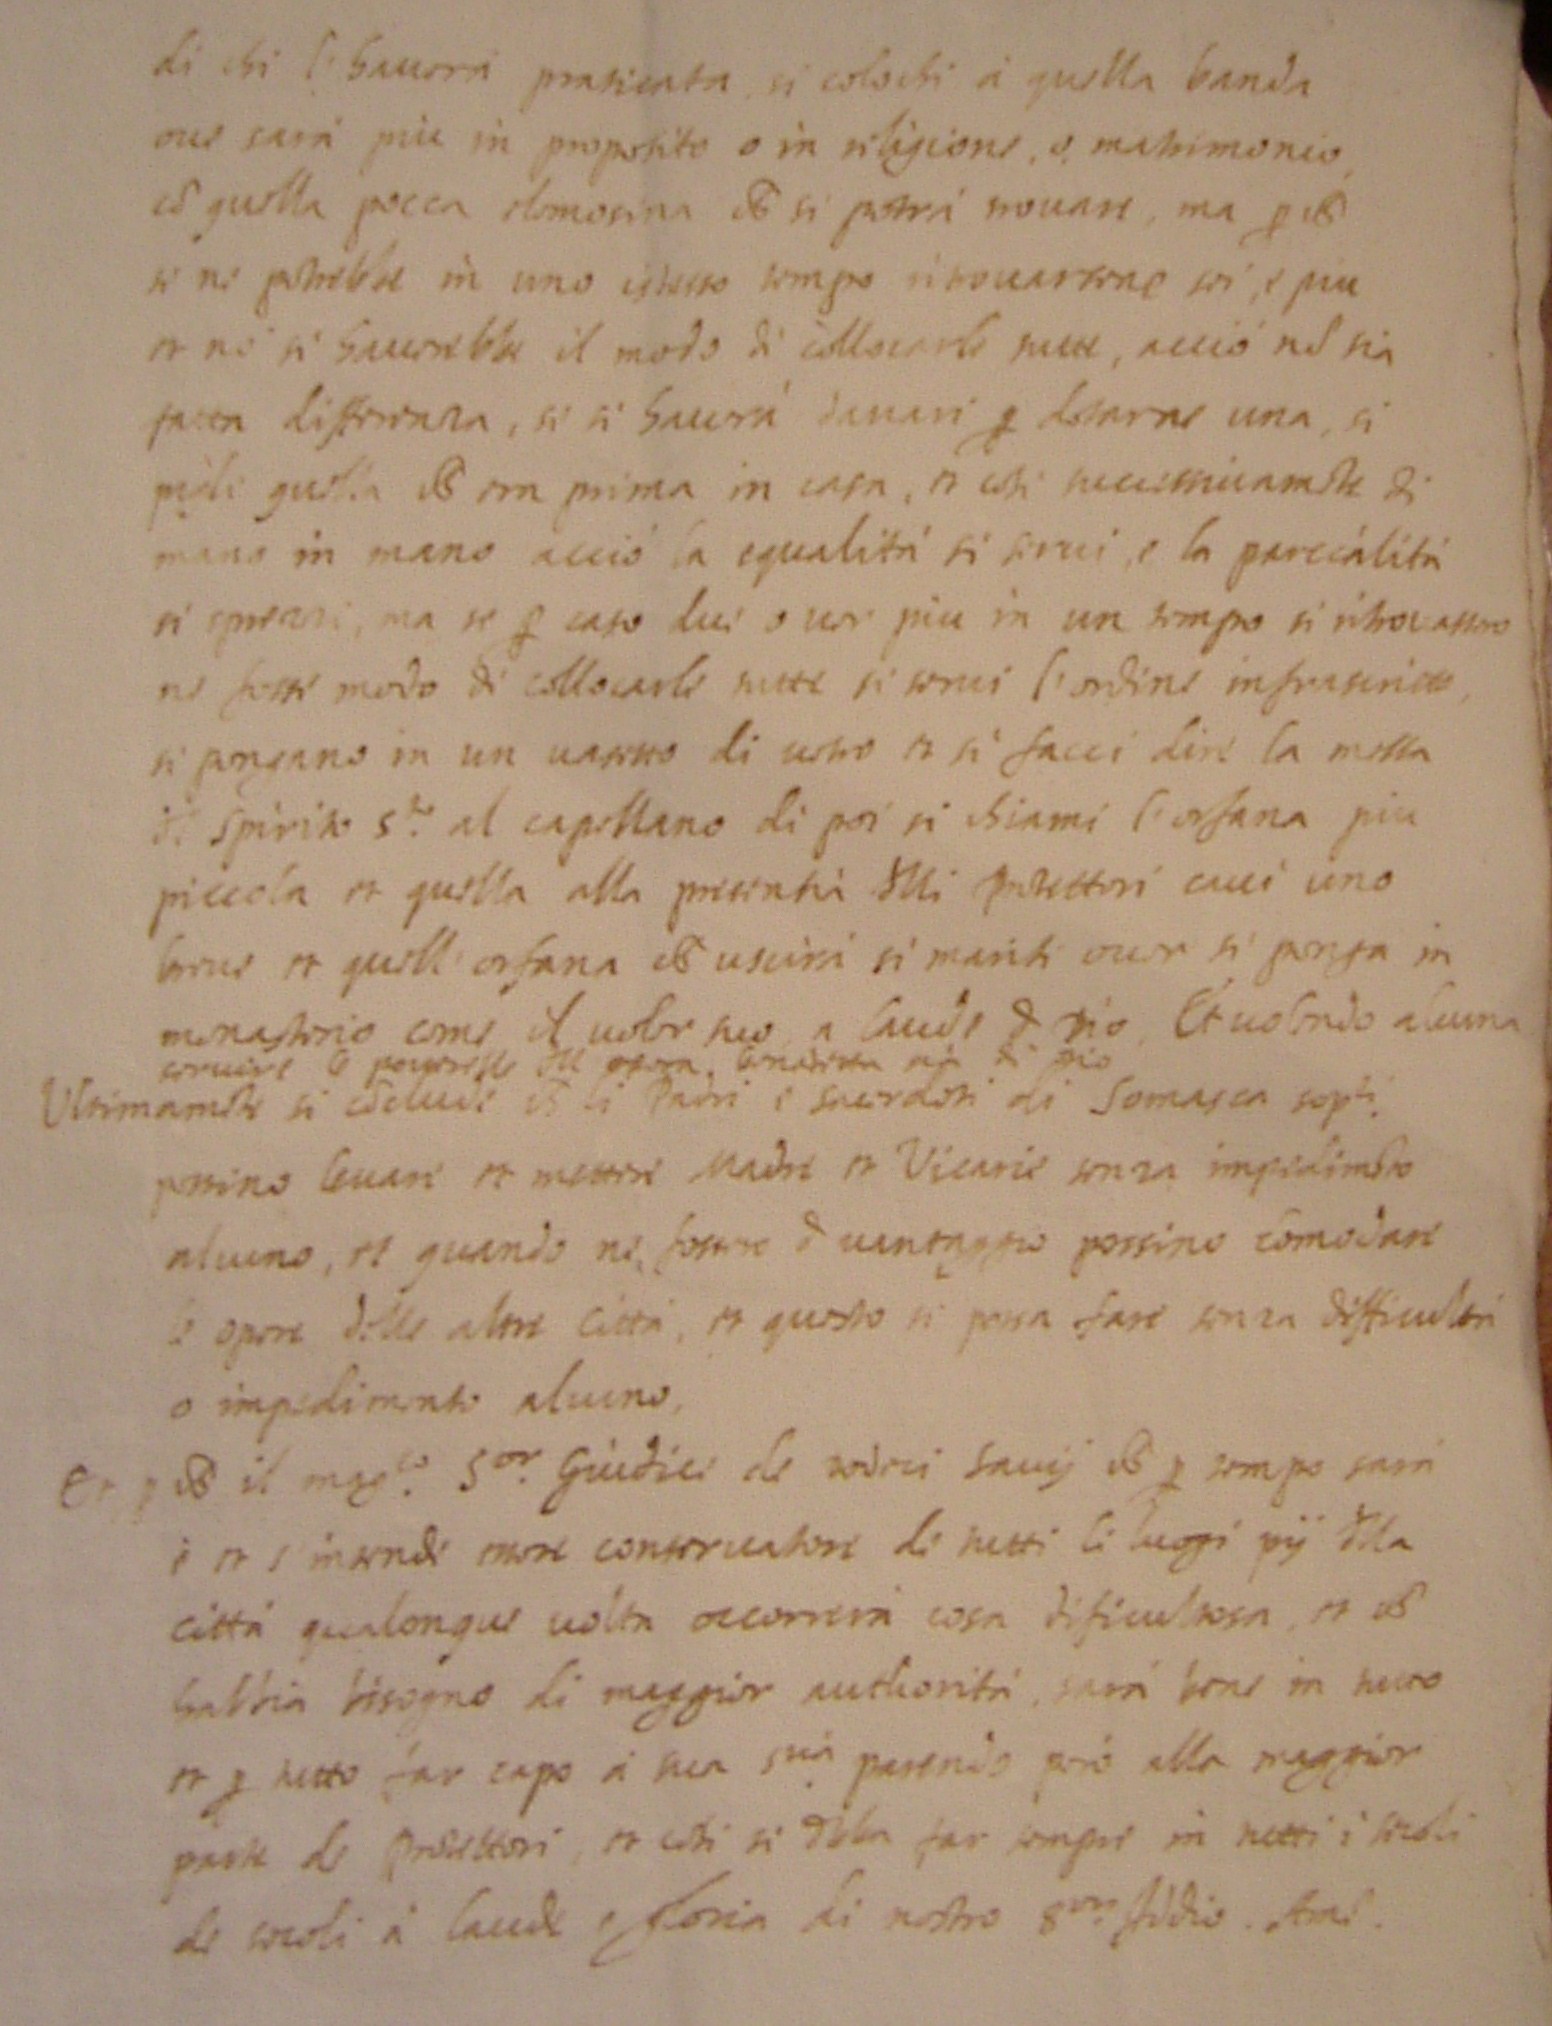 di chi l'hauerà praticata, si colochi à quella banda
oue sarà piu in proposito o in religione, o, matrimonio,
cõ quella pocca elemosina ch̃ si potrà trouare, ma p ch̃
se ne potrebbe in uno istesso tempo ritrouarsene sei, e piu
et nõ si hauerebbe il modo di collocarle tutte, acciò nõ sia
fatta differenza, se si hauerà danari p dotarne una, si
pigli quella ch̃ era prima in casa, et cosi successiuamẽte di
mano in mano acciò la equalità si serui, e la parcialità
si sprezzi, ma se p caso due o uer piu in un tempo si ritrouassero
ne fosse modo di collocarle tutte si serui l'ordine infrascritto,
si pongano in un uasetto di uetro et si facci dire la messa
dl Spirito S.to al capellano di poi si chiami l'orfana piu
piccola et quella alla presentia dlli Protettori caui uno
breue et quell'orfana ch̃ uscirà si mariti ouer si ponga in
monasterio come il uoler suo, a laude d Dio. Et uolẽdo alcuna
seruire le pouerelle dll opera, benedetta sia di Dio
Ultimamẽte si cõclude ch̃ li Padri e sacerdoti di Somasca sop.ti
possino leuare et mettere Madre et Vicarie senza impedimẽto
alcuno, et quando ne fossero d uantaggio possino comodare
le opere delle altre Città, et questo si possa fare senza difficultà
o impedimento alcuno.
Et p ch̃ il mag.co S.or Giudice de dodeci Sauij ch̃ p tempo sarà
è et s'intende essere conseruatore de tutti li luogi pij dlla
città qualonque uolta occorrerà cosa dificultosa, et ch̃
habbia bisogno di maggior authorità, sarà bene in tutto
et p tutto far capo à sua S.ria parendo però alla maggior
parte de Protettori, et cosi si debba far sempre in tutti i secoli
de secoli à laude e gloria di nostro S.or Iddio. Amẽ.